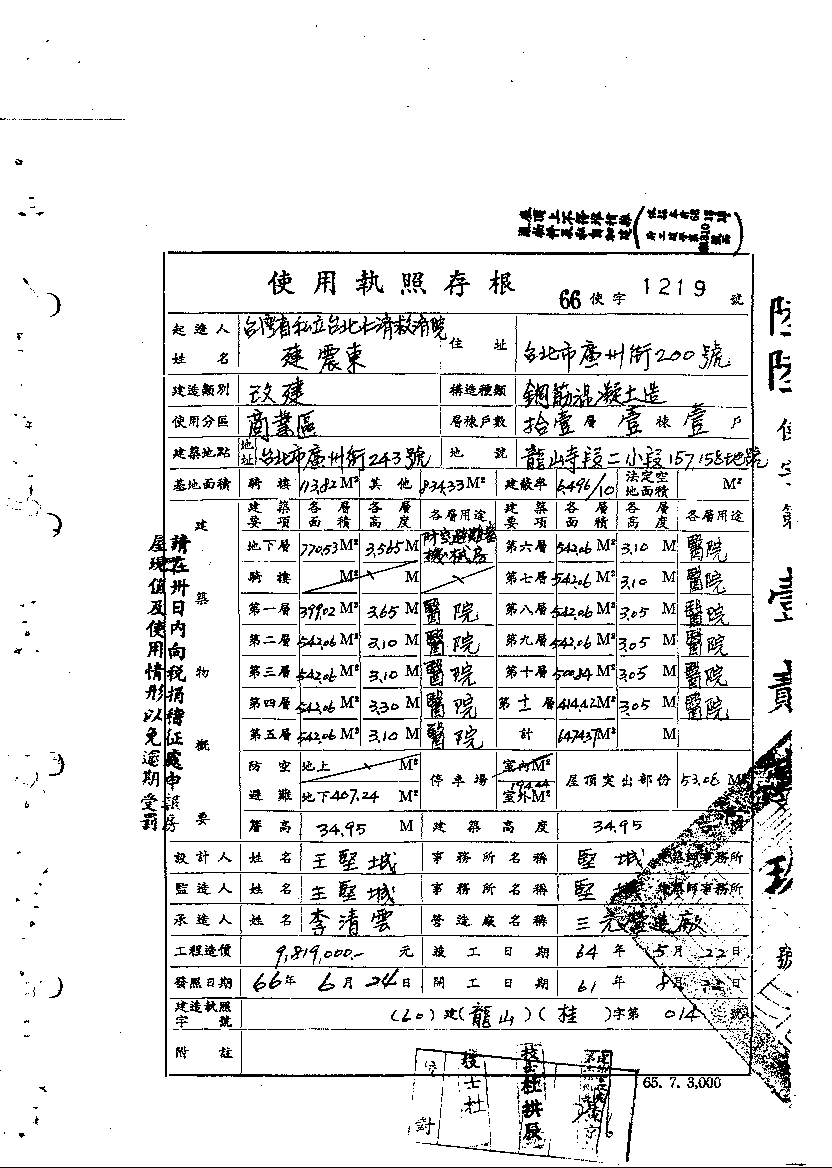 使用執照存根
66使字 1219 號
起造人姓名 台灣省私立台北仁濟救濟院 建震東 住址 台北市廣州街200號
建造類別 改建 構造種類 鋼筋混凝土造
使用分區 商業區 層棟戶數 拾壹層壹棟壹戶
建築地點 地址 台北市廣州街243號 地號 龍山寺段二小段157.158地號
基地面積 騎樓 113.82M² 其他 834.33M² 建蔽率 6.496/10 法定空地面積 M²
建築物概要 建築要項 各層面積 各層高度 各層用途 建築要項 各層面積 各層高度 各層用途
地下層 770.53M² 3.565M 防空避難室機械房 第六層 542.06M² 3.10M 醫院
騎樓 M² M 第七層 542.06M² 3.10M 醫院
第一層 399.02M² 3.65M 醫院 第八層 542.06M² 3.05M 醫院
第二層 542.06M² 3.10M 醫院 第九層 542.06M² 3.05M 醫院
第三層 542.06M² 3.10M 醫院 第十層 500.84M² 3.05M 醫院
第四層 542.06M² 3.30M 醫院 第十一層 414.42M² 3.05M 醫院
第五層 542.06M² 3.10M 醫院 計 6474.37M² M
防空避難 地上 M² 停車場 室內M² 194.44 室外M² 屋頂突出部份 53.06M²
地下407.24M²
簷高 34.95 M 建築高度 34.95
設計人 姓名 王堅城 事務所名稱 堅城建築師事務所
監造人 姓名 王堅城 事務所名稱 堅城建築師事務所
承造人 姓名 李清雲 營造廠名稱 三元營造廠
工程造價 9,819,000.- 元 竣工日期 64年5月22日
發照日期 66年6月24日 開工日期 61年8月22日
建造執照字號 (60)建(龍山)(桂)字第014號
附註
65. 7. 3,000
請在卅日內向稅捐稽征處申報房
屋現值及使用情形以免逾期受罰
陸陸使字第壹
號
技士杜
技士杜拱辰
對